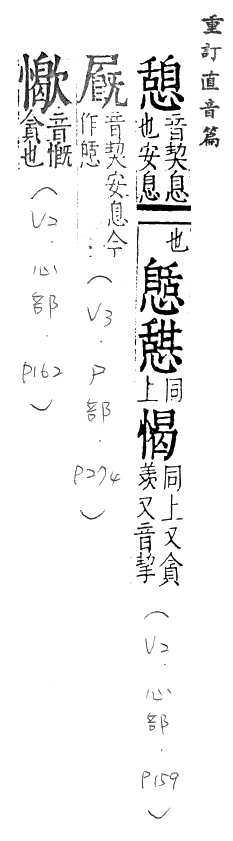 重訂直音篇
憩音契息也安息也同上愒同上又貪羨又音挈（V2.心部.P159）
音契安息今作…（V3.尸部.P274）
音慨貪也（V2.心部.P162）